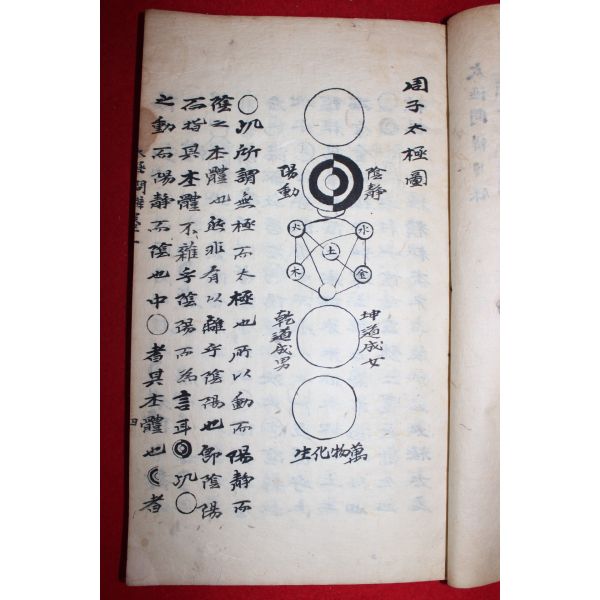 周子太極圖
陰靜
陽動
水
火
土
金
木
坤道成女
乾道成男
萬物化生
○此所謂無極而太極也所以動而陽靜而
陰之本體也然非有以離乎陰陽也即陰陽
而指其本體不雜乎陰陽而為言耳◎此○
之動而陽靜而陰也中○者其本體也☾者
四